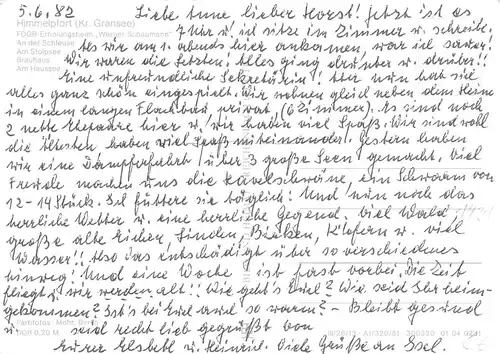 5.6.82 Liebe Anne, lieber Horst! Jetzt ist es
Himmelpfort (Kr. Gransee)
7 Uhr u. ich sitze im Zimmer u. schreibe.
FDGB-Erholungsheim „Werner Schaumann"
An der Schleuse
Als wir am 1. abends hier ankamen, war ich sauer.
Am Stolpsee
Wir waren die Letzten! Alles ging drunter u. drüber!!
Brauhaus
Am Haussee
Eine unfreundliche Sekretärin! Aber nun hat sich
alles ganz schön eingespielt. Wir wohnen gleich neben dem Heim
in einem langen Flachbau privat (6 Zimmer). Es sind noch
2 nette Ehepaare hier u. wir haben viel Spaß. Wir sind wohl
die Ältesten haben viel Spaß miteinander. Gestern haben
wir eine Dampferfahrt über 3 große Seen gemacht. Viel
Freude machen uns die Havelschwäne, ein Schwarm von
12-14 Stück. Ich füttere sie täglich! Und nun noch das
herrliche Wetter u. eine herrliche Gegend. Viel Wald
große alte Eichen, Linden, Birken, Kiefern u. viel
Wasser!! Also das entschädigt über so verschiedenes
hinweg! Und eine Woche ist fast vorbei. Die Zeit
fliegt u. wir werden alt!! Wie geht's Euch? Wie seid Ihr heim-
gekommen? Ist's bei Euch auch so warm? - Bleibt gesund
u. seid recht lieb gegrüßt von
Eurer Elsbeth u. Heinrich. Viele Grüße an